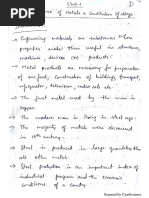 Unit-1
structure of Metals & Constitution of alloys
→ Engineering materials are substances whose
properties make them useful in structures,
machines, devices (or) products.
→ Metal products are necessary for preparation
of surface, construction of buildings, transport,
refrigerator, television, radio etc.
→ The first metal used by the man is
copper.
→ The modern man is living in steel age.
→ The majority of metals were discovered
in 19th century.
→ Steel is produced in large quantities than
all other metals.
→ Steel production is an important index of
industrial progress and the economic
conditions of a country.
Scanned by CamScanner